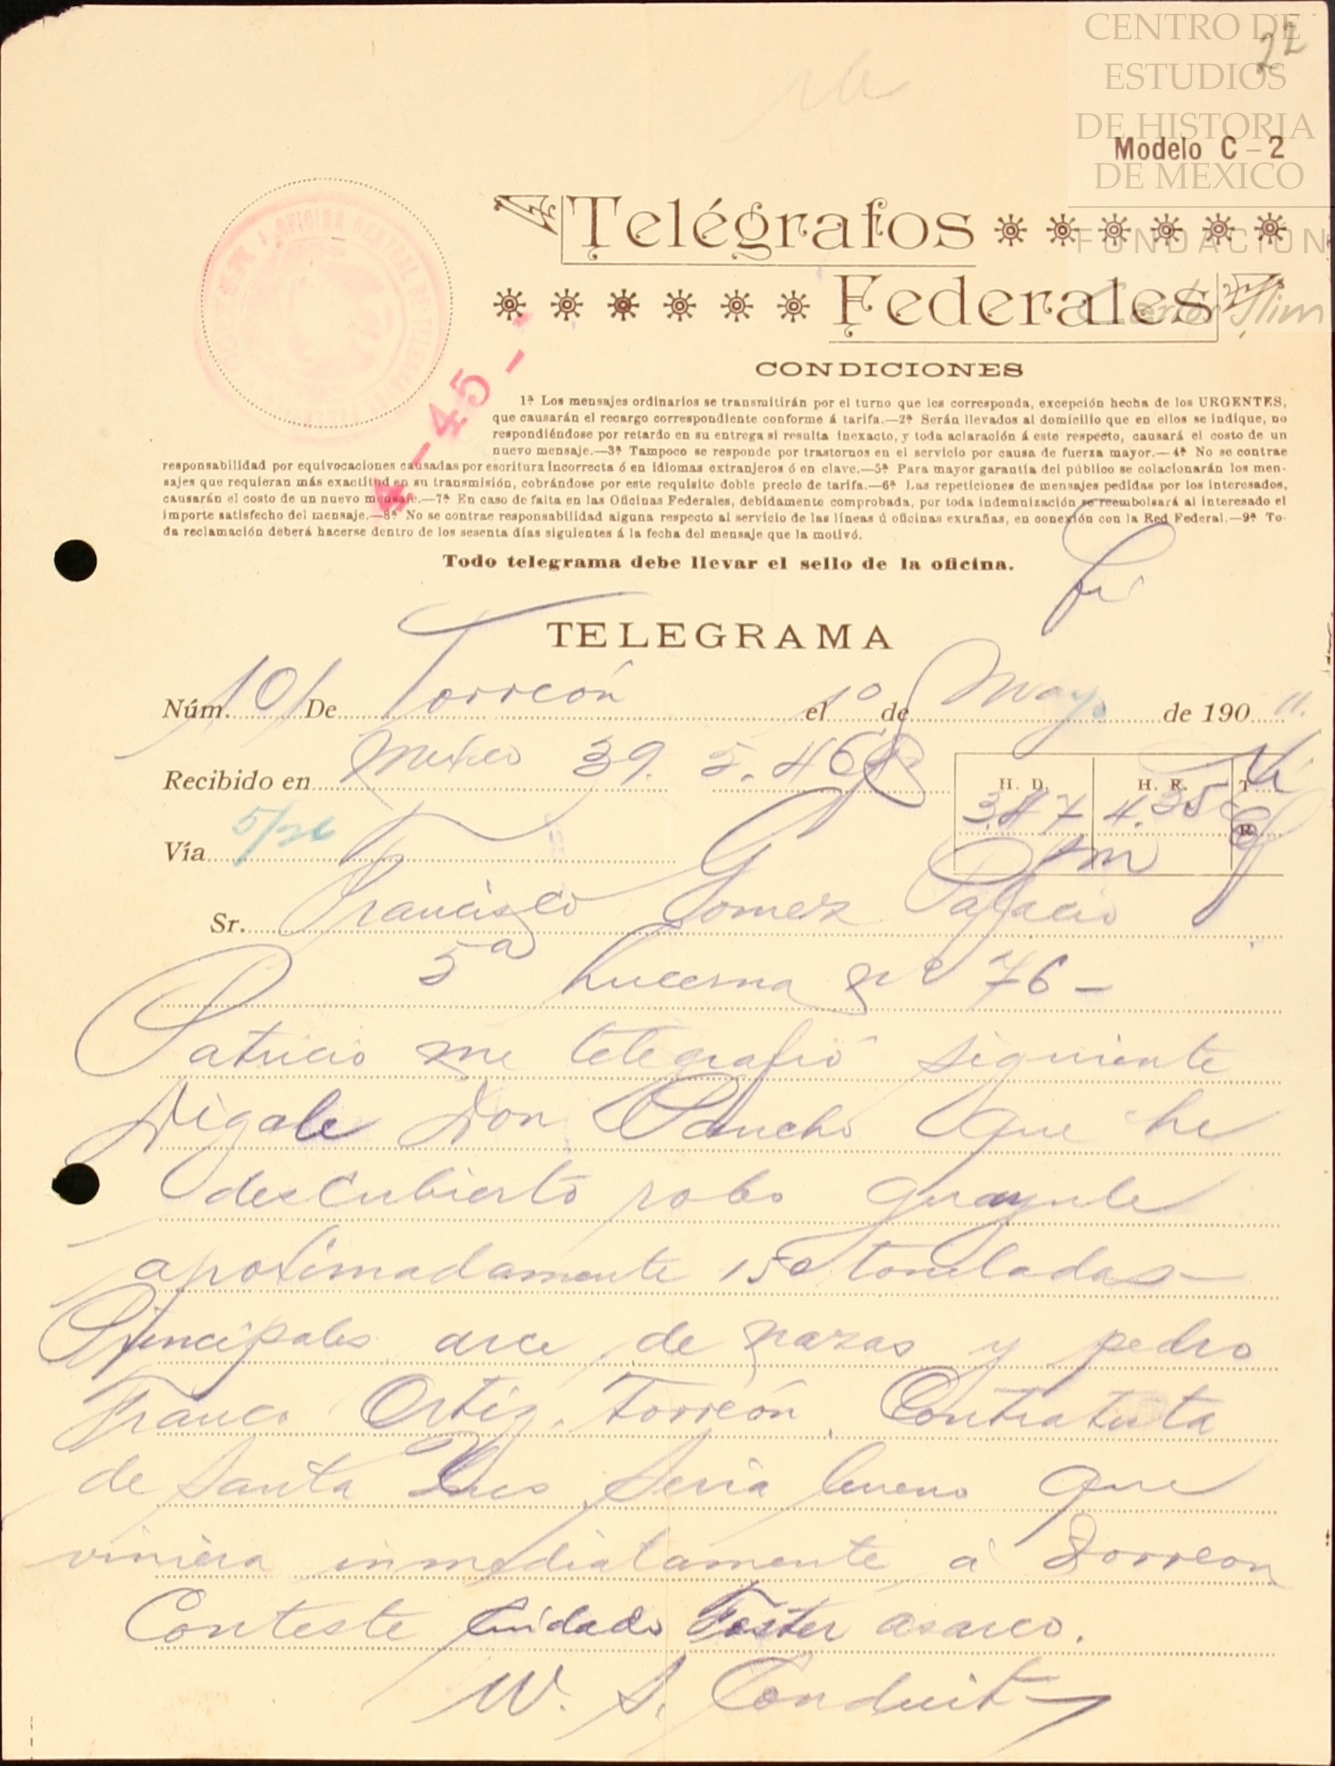 CENTRO DE
ESTUDIOS
DE HISTORIA
DE MEXICO
FUNDACION
Carlos Slim
22
Modelo C-2
Telégrafos
Federales
-45-
CONDICIONES
1ª Los mensajes ordinarios se transmitirán por el turno que les corresponda, excepción hecha de los URGENTES,
que causarán el recargo correspondiente conforme á tarifa.—2ª Serán llevados al domicilio que en ellos se indique, no
respondiéndose por retardo en su entrega si resulta inexacto, y toda aclaración á este respecto, causará el costo de un
nuevo mensaje.—3ª Tampoco se responde por trastornos en el servicio por causa de fuerza mayor.—4ª No se contrae
responsabilidad por equivocaciones causadas por escritura incorrecta ó en idiomas extranjeros ó en clave.—5ª Para mayor garantía del público se colacionarán los men-
sajes que requieran más exactitud en su transmisión, cobrándose por este requisito doble precio de tarifa.—6ª Las repeticiones de mensajes pedidas por los interesados,
causarán el costo de un nuevo mensaje.—7ª En caso de falta en las Oficinas Federales, debidamente comprobada, por toda indemnización se reembolsará al interesado el
importe satisfecho del mensaje.—8ª No se contrae responsabilidad alguna respecto al servicio de las líneas ú oficinas extrañas, en conexión con la Red Federal.—9ª To-
da reclamación deberá hacerse dentro de los sesenta días siguientes á la fecha del mensaje que la motivó.
Todo telegrama debe llevar el sello de la oficina.
TELEGRAMA
Núm. 101 De Torreón el 1º de Mayo de 190 11.
Recibido en Mexico 39. 5.46
H. D. H. R. T.
3.47 4.35 R
Pm
Vía 5/26
Sr. Francisco Gomez Palacio
5a Lucerna Nº 76-
Patricio me telegrafió siguiente
Digale Don Pancho que he
descubierto robo guayule
aproximadamente 150 toneladas-
Principales arce de nazas y pedro
Franco Ortiz. Torreón. Contratista
de Santa Ines Seria bueno que
viniera inmediatamente á Torreon
Conteste Cuidado Foster asarco.
W. S. Conduit